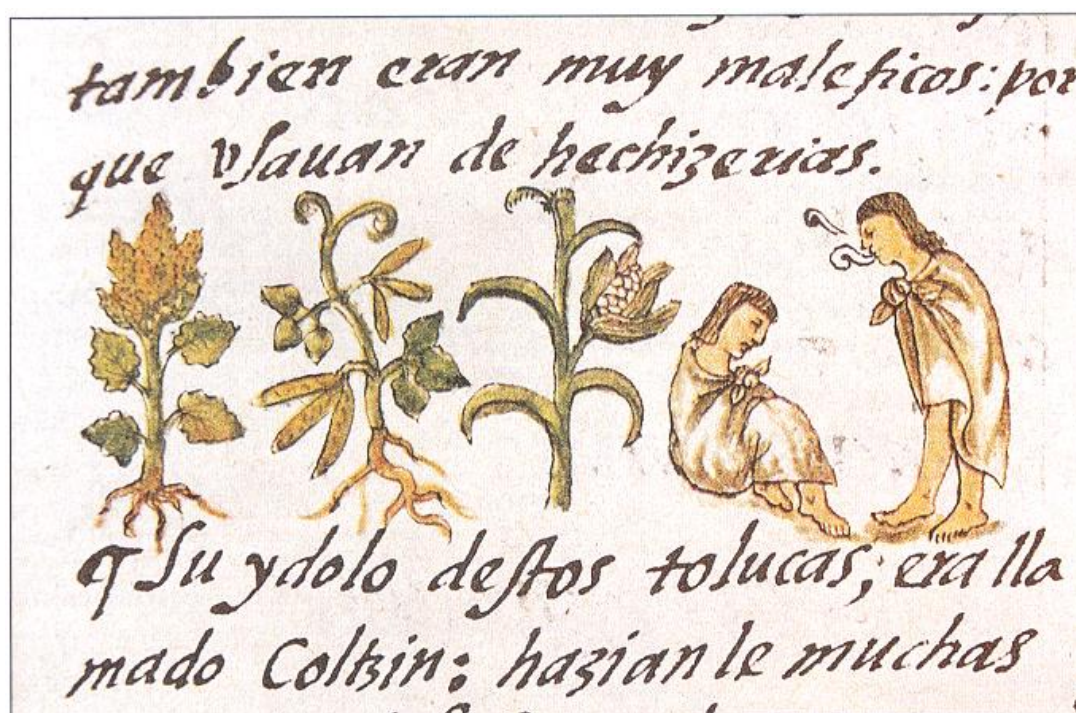 tambien eran muy maleficos: por
que vsauan de hechizerias.
¶ Su ydolo destos tolucas, era lla
mado Coltzin: hazian le muchas